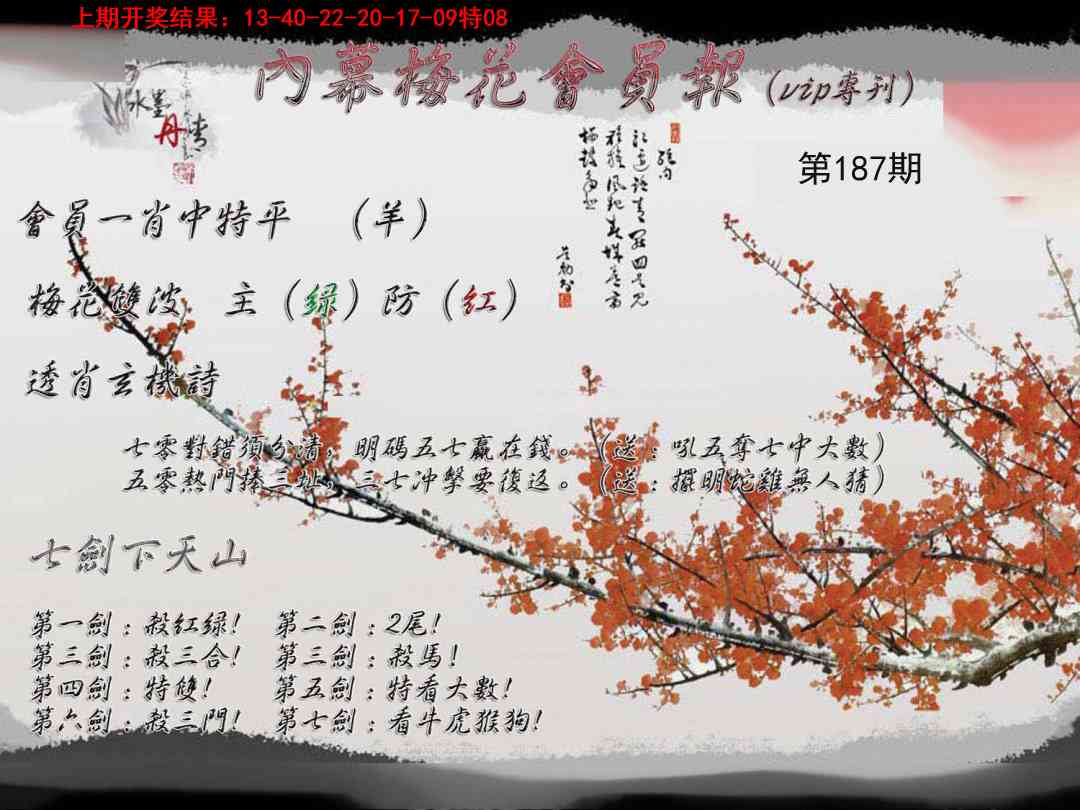 上期开奖结果：13-40-22-20-17-09特08
內幕梅花會員報（vip專刊）
水墨丹青
第187期
會員一肖中特平 （羊）
梅花雙波 主（綠）防（紅）
透肖玄機詩
七零對錯須分清，明碼五七贏在錢。（送：吼五奪七中大數）
五零熱門捧三址，三七沖擊要復返。（送：擺明蛇雞無人猜）
七劍下天山
第一劍：殺紅綠！ 第二劍：2尾！
第三劍：殺三合！ 第三劍：殺馬！
第四劍：特雙！ 第五劍：特看大數！
第六劍：殺三門！ 第七劍：看牛虎猴狗！